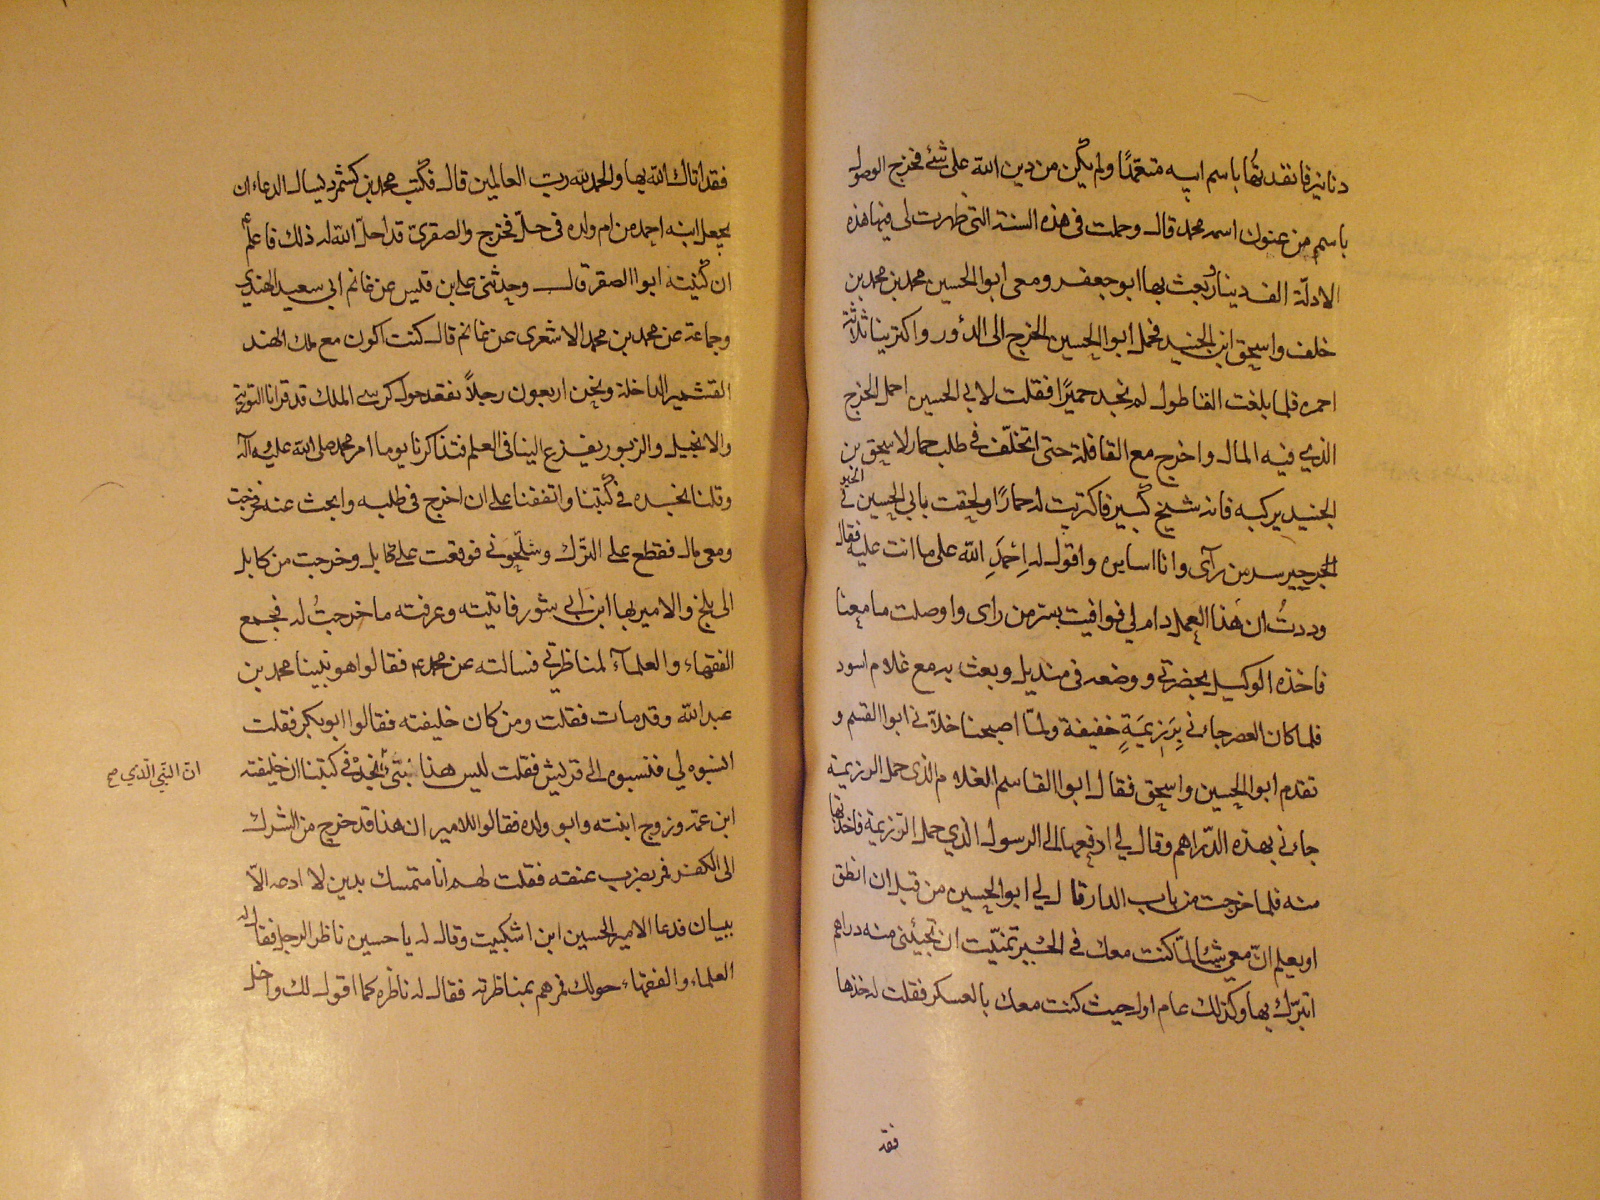 دنانير فانفدتها باسم ابيه متعمّدًا ولم يكن من دين الله على شئ فخرج الوصول
باسم من عنوان اسمه محمد قال وحملت في هذه السنة التي ظهرت لي فيها هذه
الادلّة الف دينار بعث بها ابو جعفر ومعي ابو الحسين محمد بن محمد بن
خلف واسحق ابن الجنيد فحمل ابو الحسين الخرج الى الدور واكترينا ثلاثة
احمره فلما بلغت القاطول لم نجد حميرًا فقلت لابي الحسين احمل الخرج
الذي فيه المال واخرج مع القافلة حتى اتخلّف في طلب حمار لاسحق بن
الجنيد يركبه فانه شيخ كبير فاكتريت له حمارًا ولحقت بابي الحسين في الحير
سر من رآى وانا اسايره واقول له احمد الله على ما انت عليه فقال
وددتُ ان هذا العمل دام لي فوافيت سر من راى واوصلت ما معنا
فاخذه الوكيل بحضرتي ووضعه في منديل وبعث به مع غلام اسود
فلما كان العصر جاءني برزيمةٍ خفيفة ولمّا اصبحنا خلا بي ابو القسم و
تقدم ابو الحسين واسحق فقال ابو القاسم الغلام الذي حمل الرزيمة
جاءني بهذه الدّراهم وقال لي ادفعها الى الرسول الذي حمل الرزيمة فاخذتها
منه فلما خرجت من باب الدار قال لي ابو الحسين من قبل ان انطق
او يعلم انّ معي شيئا لمّا كنت معك في الحير تمنّيت ان تجيئني منه دراهم
اتبرّك بها وكذلك عام اول حيث كنت معك بالعسكر فقلت له خذها
فقد
فقد اتاك الله بها والحمد لله رب العالمين قال وكتب محمد بن كشمرد يسال الدعاء ان
يجعل ابنه احمد من ام ولده في حلّ فخرج والصقري قد احلّ الله له ذلك فاعلم
ان كنيته ابو الصقر قال وحدثني علي بن قيس عن غانم ابي سعيد الهندي
وجماعة عن محمد بن محمد الاشعري عن غانم قال كنت اكون مع ملك الهند
القشمير الداخلة ونحن اربعون رجلاً نقعد حول كرسي الملك قد قرانا التورية
والانجيل والزبور يفزع الينا في العلم فتذاكرنا يوما امر محمد صلى الله عليه وآله
وقلنا نجده في كتبنا واتفقنا على ان اخرج في طلبه وابحث عنه فخرجت
ومعي مال فقطع على الترك وشلّحوني فوقعت على كابل وخرجت من كابل
الى بلخ والامير بها ابن ابي شور فاتيته وعرفته ما خرجتُ له فجمع
الفقهاء والعلمآء لمناظرتي فسالته عن محمد فقالوا هو نبينا محمد بن
عبد الله وقد مات فقلت ومن كان خليفته فقالوا ابوبكر فقلت
انسبوه لي فنسبوه الى قريش فقلت ليس هذا نبيّ نجده في كتبنا ان خليفته
انّ النبّي الّذي صح
ابن عمّه وزوج ابنته وابو ولده فقالوا للامير ان هذا قد خرج من الشرك
الى الكفر فمر بضرب عنقه فقلت لهم انا متمسك بدين لا ادعه الاّ
ببيان فدعا الامير الحسين ابن اشكيب وقال له يا حسين ناظر الرجل فقال له
العلماء والفقهاء حولك فمرهم بمناظرته فقال له ناظره كما اقول لك واخل